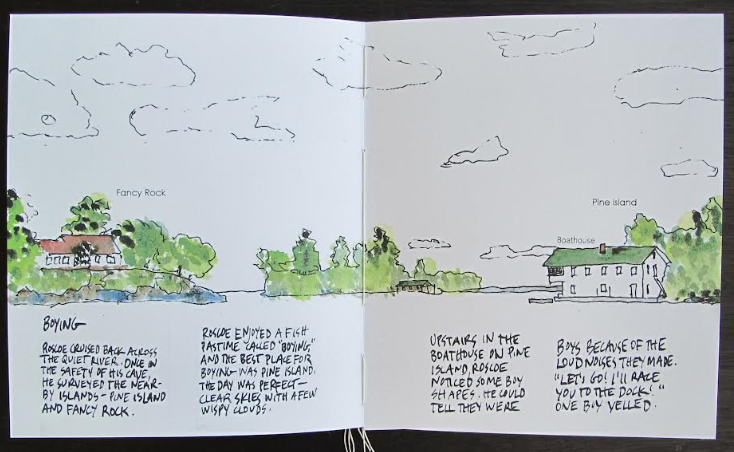 Fancy Rock
Pine Island
Boathouse
BOYING
ROSCOE CRUISED BACK ACROSS
THE QUIET RIVER. ONCE IN
THE SAFETY OF HIS CAVE,
HE SURVEYED THE NEAR-
BY ISLANDS - PINE ISLAND
AND FANCY ROCK.
ROSCOE ENJOYED A FISH
PASTIME CALLED "BOYING"
AND THE BEST PLACE FOR
BOYING WAS PINE ISLAND.
THE DAY WAS PERFECT -
CLEAR SKIES WITH A FEW
WISPY CLOUDS.
UPSTAIRS IN THE
BOATHOUSE ON PINE
ISLAND, ROSCOE
NOTICED SOME BOY
SHAPES. HE COULD
TELL THEY WERE
BOYS BECAUSE OF THE
LOUD NOISES THEY MADE.
"LET'S GO! I'LL RACE
YOU TO THE DOCK!"
ONE BOY YELLED.